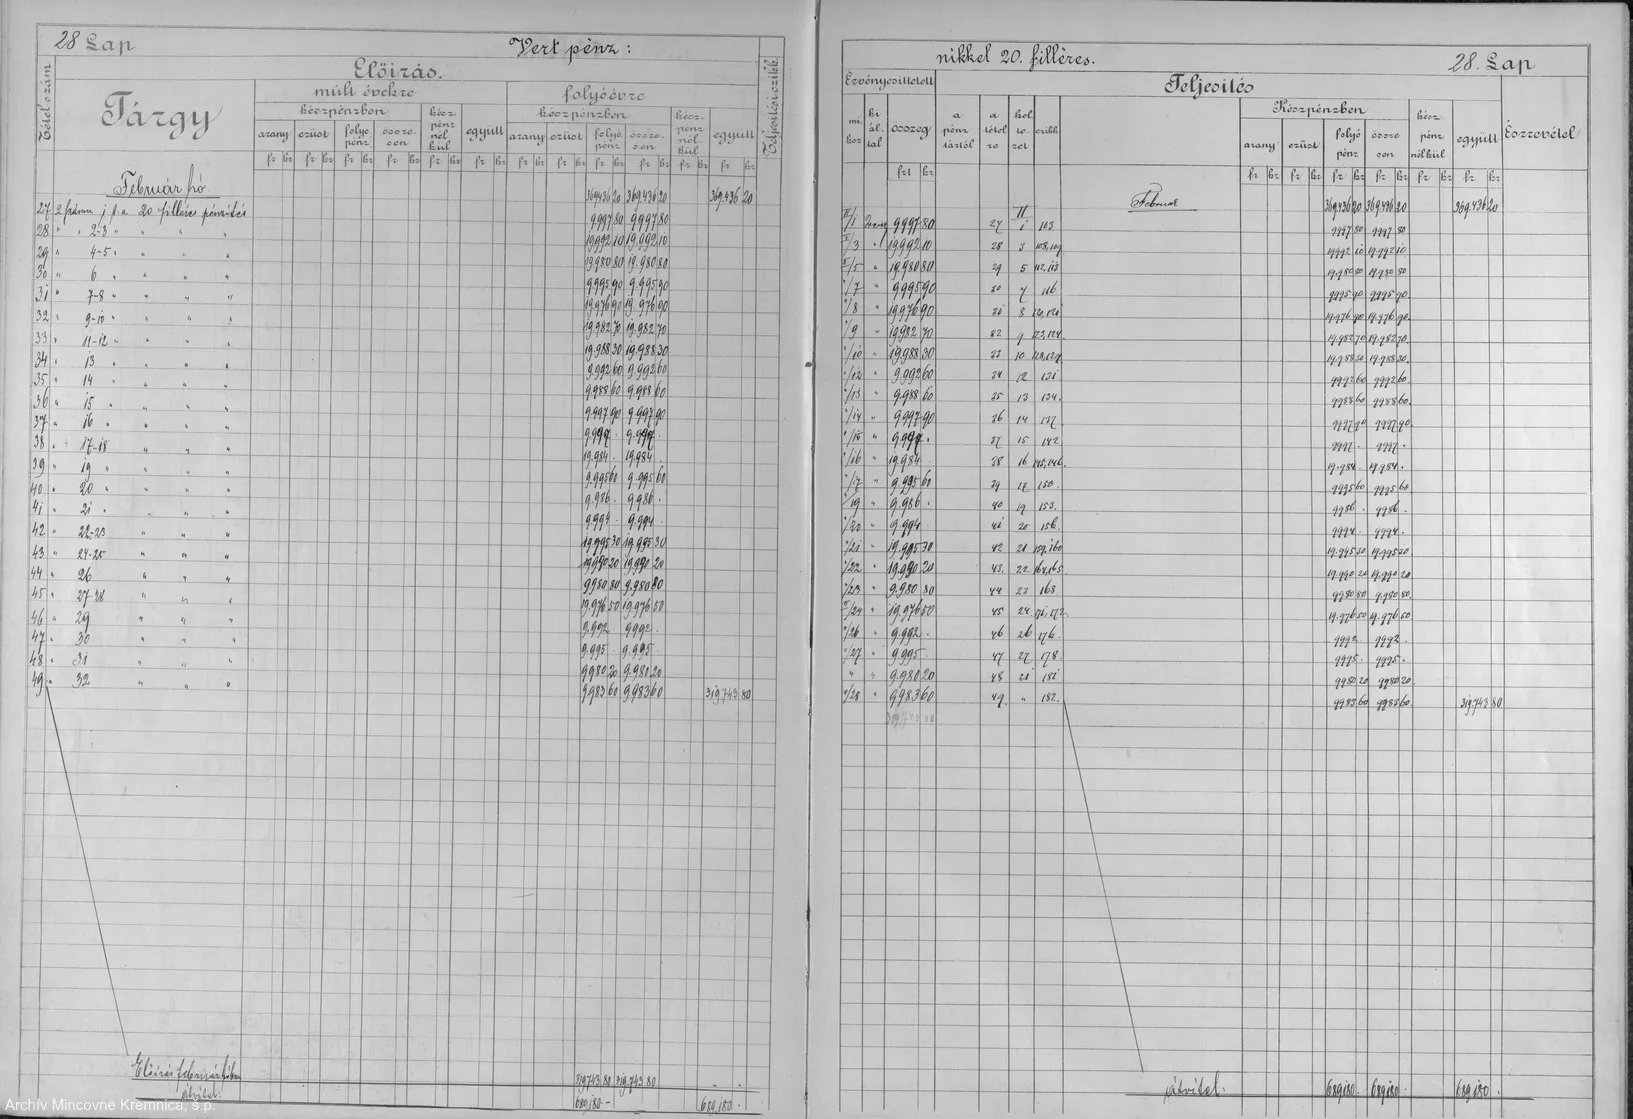 28 Lap
Vert pénz:
Előirás.
Tételszám
Tárgy
mult évekre
folyóévre
Teljesitési czikk.
készpénzben
kész- pénz nél- kül
együtt
készpénzben
kész- pénz nél- kül
együtt
arany ezüst folyó pénz össze- sen
arany ezüst folyó pénz össze- sen
fr kr fr kr fr kr fr kr fr kr fr kr fr kr fr kr fr kr fr kr fr kr fr kr
Február hó
369.436 20 369.436 20 369.436 20
27 2 számu j. f. a 20 filléres pénzités 9997 80 9.997 80
28 " " 2-3 " " " " 19.992 10 19.992 10
29 " 4-5 " " " " 19.980 80 19.980 80
30 " 6 " " " " 9.995 90 9.995 90
31 " 7-8 " " " " 19.976 90 19.976 90
32 " 9-10 " " " " 19.982 70 19.982 70
33 " 11-12 " " " " 19.988 30 19.988 30
34 " 13 " " " " 9.992 60 9.992 60
35 " 14 " " " " 9.988 60 9.988 60
36 " 15 " " " " 9.997 90 9.997 90
37 " 16 " " " " 9.997 9.997 .
38 " 17-18 " " " 19.984 . 19.984 .
39 " 19 " " " " 9.995 60 9.995 60
40 " 20 " " " " 9.986 . 9.986 .
41 " 21 " " " " 9.994 . 9.994 .
42 " 22-23 " " " 19.995 30 19.995 30
43 " 24-25 " " " 19.990 20 19.990 20
44 " 26 " " " 9.980 80 9.980 80
45 " 27-28 " " " 19.976 50 19.976 50
46 " 29 " " " 9.992 . 9.992 .
47 " 30 " " " 9.995 . 9.995 .
48 " 31 " " " 9.980 20 9.980 20
49 " 32 " " " 9.983 60 9.983 60 319.743 80
Előirás február hóban 319.743 80 319.743 80
átvitel: 689,180 - 689,180 -
nikkel 20. filléres.
28. Lap
Érvényesittetett
Teljesités
mi- kor
ki ál- tal
összeg
a pénz- tártól
a tétel- re
kel- te- zet
czikk
Készpénzben
kész pénz nélkül
együtt
Észrevétel
arany ezüst folyó pénz össze sen
frt kr fr kr fr kr fr kr fr kr fr kr fr kr
Február 369.436 20 369.436 20 369.436 20
II/1 9.997 80 27 II 1 103 9.997 80 9.997 80
II/3 " 19.992 10 28 3 108,109 19.992 10 19.992 10
II/5 " 19.980 80 29 5 112,113 19.980 80 19.980 80
"/7 " 9.995 90 30 7 116 9.995 90 9.995 90
"/8 " 19.976 90 31 8 120,121 19.976 90 19.976 90
"/9 " 19.982 70 32 9 123,124 19.982 70 19.982 70
"/10 " 19.988 30 33 10 128,129 19.988 30 19.988 30
"/12 " 9.992 60 34 12 131 9.992 60 9.992 60
"/13 " 9.988 60 35 13 134. 9.988 60 9.988 60
"/14 " 9.997 90 36 14 137. 9.997 90 9.997 90
"/15 " 9.997 . 37 15 142 9.997 . 9.997 .
"/16 " 19.984 38 16 145,146. 19.984 . 19.984 .
"/17 " 9.995 60 39 17 150. 9.995 60 9.995 60
"/19 " 9.986 . 40 19 153. 9.986 . 9.986 .
"/20 " 9.994 41 20 156. 9.994 . 9.994 .
"/21 " 19.995 30 42 21 159,160 19.995 30 19.995 30
"/22 " 19.990 20 43. 22 164,165 19.990 20 19.990 20
"/23 " 9.980 80 44 23 168 9.980 80 9.980 80.
II/24 " 19.976 50 45 24 171,172 19.976 50 19.976 50
"/26 " 9.992 . 46 26 176. 9.992 . 9.992 .
"/27 " 9.995 47 27 178. 9.995 . 9.995 .
" " 9.980 20 48 181 9.980 20 9.980 20
"/28 " 9.983 60 49. " 182. 9.983 60 9.983 60. 319.743 80
319.743 80
átvitel: 689,180. 689,180. 689,180.
Archív Mincovne Kremnica, š.p.